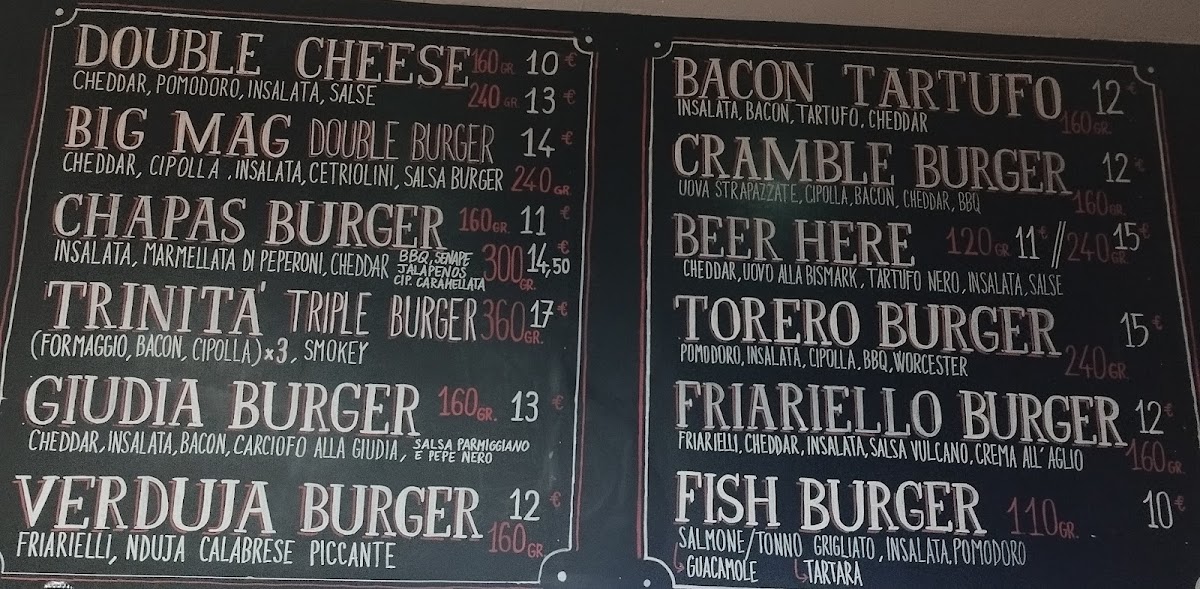 DOUBLE CHEESE 160 GR. 10 €
CHEDDAR, POMODORO, INSALATA, SALSE 240 GR. 13 €
BIG MAG DOUBLE BURGER 14 €
CHEDDAR, CIPOLLA, INSALATA, CETRIOLINI, SALSA BURGER 240 GR.
CHAPAS BURGER 160 GR. 11 €
INSALATA, MARMELLATA DI PEPERONI, CHEDDAR BBQ, SENAPE 300 GR. 14,50 €
JALAPENOS
CIP. CARAMELLATA
TRINITA' TRIPLE BURGER 360 GR. 17 €
(FORMAGGIO, BACON, CIPOLLA) ×3, SMOKEY
GIUDIA BURGER 160 GR. 13 €
CHEDDAR, INSALATA, BACON, CARCIOFO ALLA GIUDIA, SALSA PARMIGGIANO
E PEPE NERO
VERDUJA BURGER 12 €
FRIARIELLI, NDUJA CALABRESE PICCANTE 160 GR.
BACON TARTUFO 12 €
INSALATA, BACON, TARTUFO, CHEDDAR 160 GR.
CRAMBLE BURGER 12 €
UOVA STRAPAZZATE, CIPOLLA, BACON, CHEDDAR, BBQ 160 GR.
BEER HERE 120 GR. 11 € // 240 GR. 15 €
CHEDDAR, UOVO ALLA BISMARK, TARTUFO NERO, INSALATA, SALSE
TORERO BURGER 15 €
POMODORO, INSALATA, CIPOLLA, BBQ, WORCESTER 240 GR.
FRIARIELLO BURGER 12 €
FRIARIELLI, CHEDDAR, INSALATA, SALSA VULCANO, CREMA ALL' AGLIO 160 GR.
FISH BURGER 110 GR. 10 €
SALMONE/TONNO GRIGLIATO, INSALATA, POMODORO
GUACAMOLE TARTARA